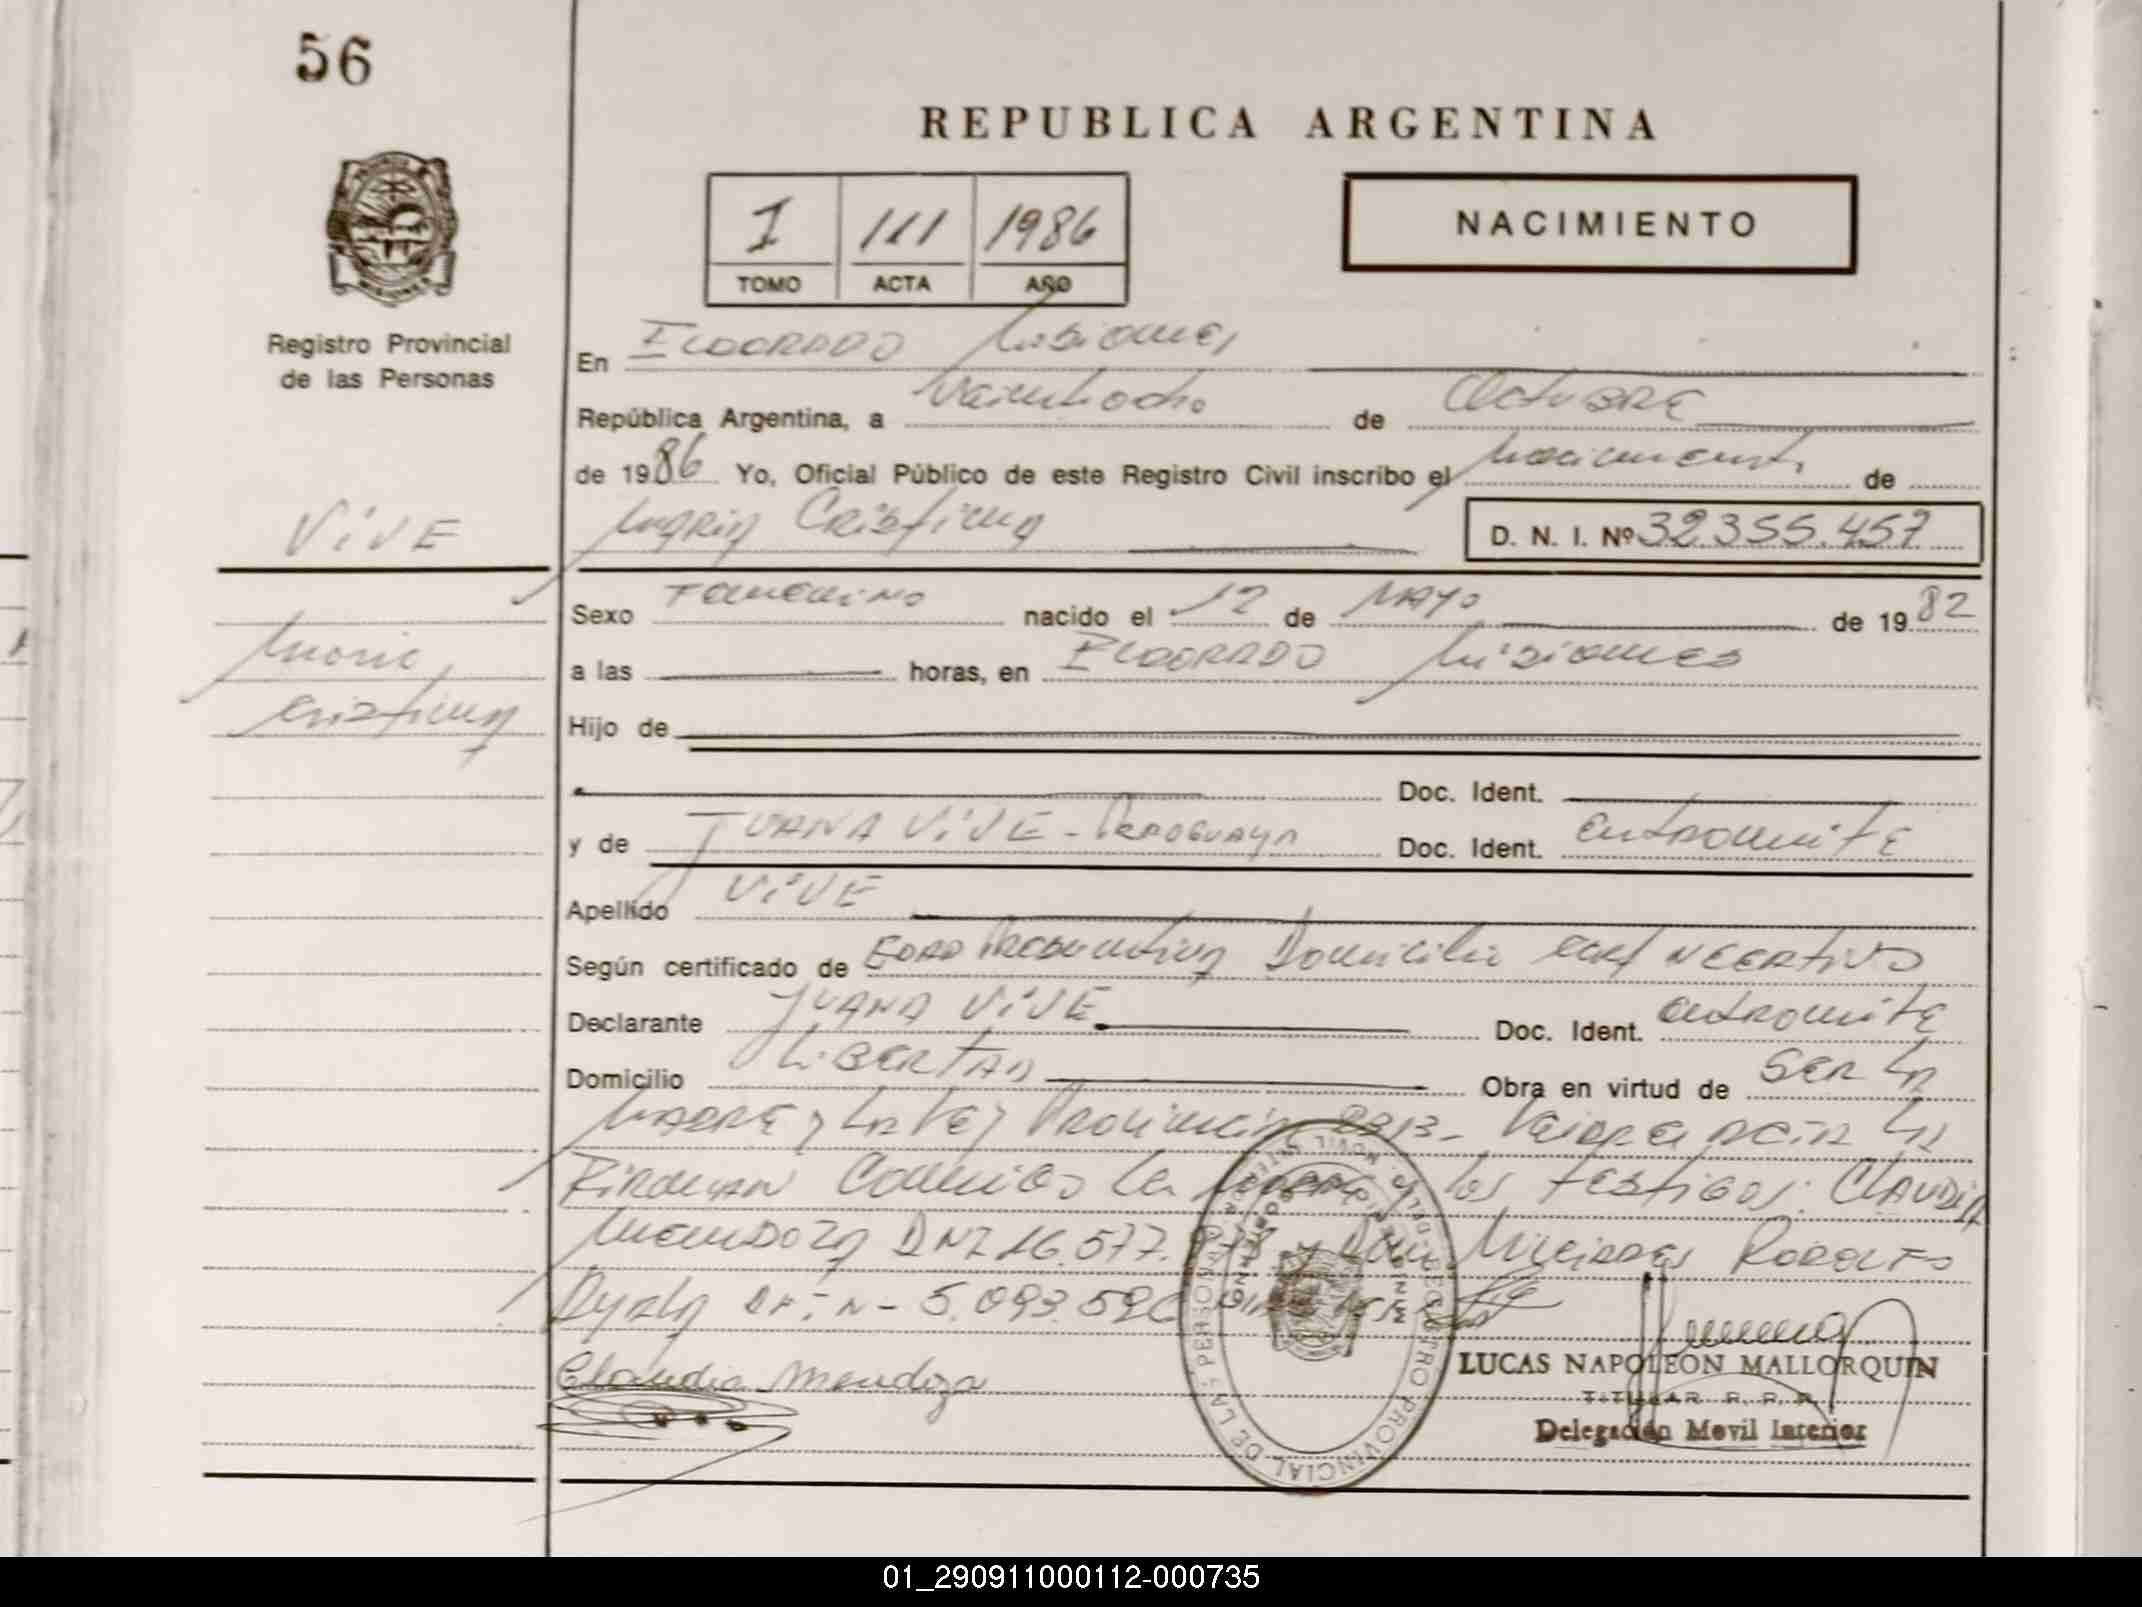 56
REPUBLICA ARGENTINA
I 111 1986
TOMO ACTA AÑO
NACIMIENTO
Registro Provincial
de las Personas
En ELDORADO Misiones
República Argentina, a Veintiocho de Octubre
de 1986 Yo, Oficial Público de este Registro Civil inscribo el Nacimiento de
VIVE
Cristina D. N. I. Nº 32.355.457
Sexo Femenino nacido el 12 de MAYO de 1982
a las horas, en ELDORADO Misiones
Cristina
Hijo de
Doc. Ident.
y de JUANA VIVE - Paraguaya Doc. Ident. en tramite
Apellido VIVE
Según certificado de EDAD Presuntiva Domicilio cert NEGATIVO
Declarante JUANA VIVE Doc. Ident. en tramite
Domicilio LIBERTAD Obra en virtud de SER LA
MADRE y LA LEY Provincial
Firman Conmigo La y los TESTIGOS: CLAUDIA
Mendoza DNI 16.577. Roberto
Ayala 5.093.59
Claudia Mendoza
LUCAS NAPOLEON MALLORQUIN
TITULAR R. P. P.
Delegación Movil Interior
REGISTRO PROVINCIAL DE LAS PERSONAS
01_290911000112-000735